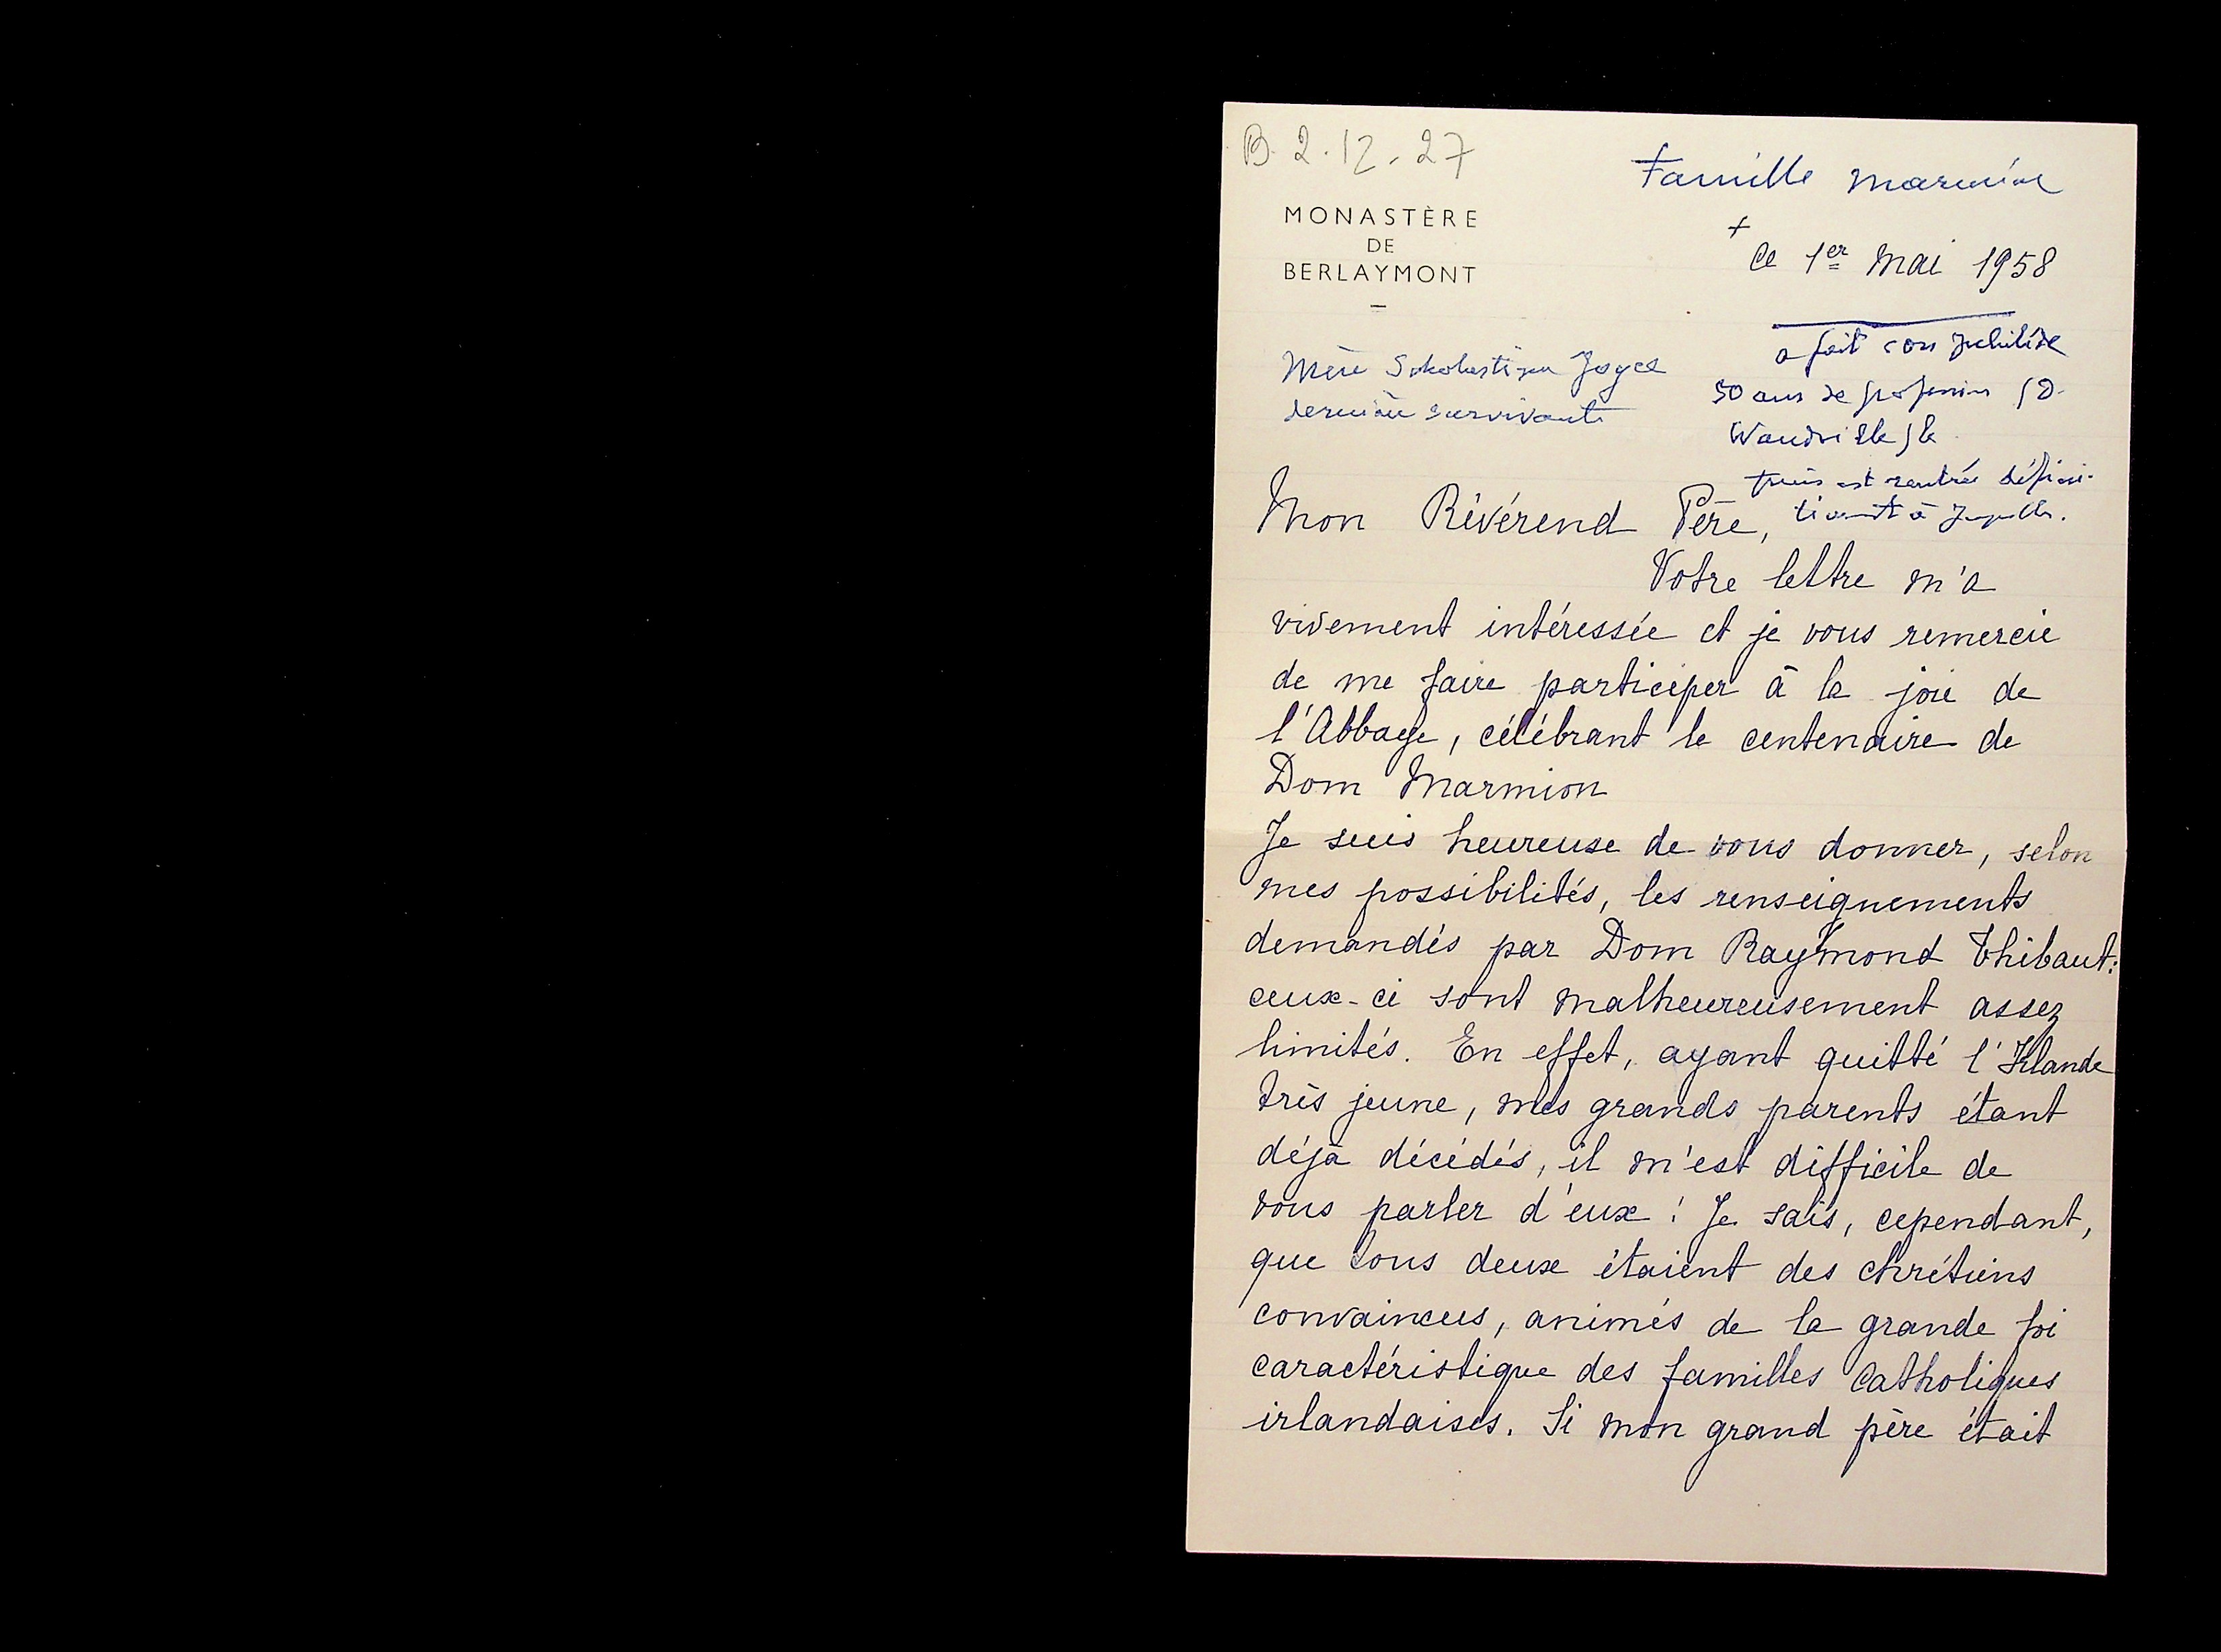 B. 2.12.27
Famille Marmion
MONASTÈRE
DE
BERLAYMONT
+
Ce 1er Mai 1958
Mère Scholastique Joyce
dernière survivante
a fait son jubilé de
50 ans de profession
puis est rentrée défini-
tivement à Jupille.
Mon Révérend Père,
Votre lettre m'a
vivement intéressée et je vous remercie
de me faire participer à la joie de
l'Abbaye, célébrant le centenaire de
Dom Marmion
Je suis heureuse de vous donner, selon
mes possibilités, les renseignements
demandés par Dom Raymond Thibaut:
ceux-ci sont malheureusement assez
limités. En effet, ayant quitté l'Irlande
très jeune, mes grands parents étant
déjà décédés, il m'est difficile de
vous parler d'eux! Je sais, cependant,
que tous deux étaient des chrétiens
convaincus, animés de la grande foi
caractéristique des familles catholiques
irlandaises. Si mon grand père était